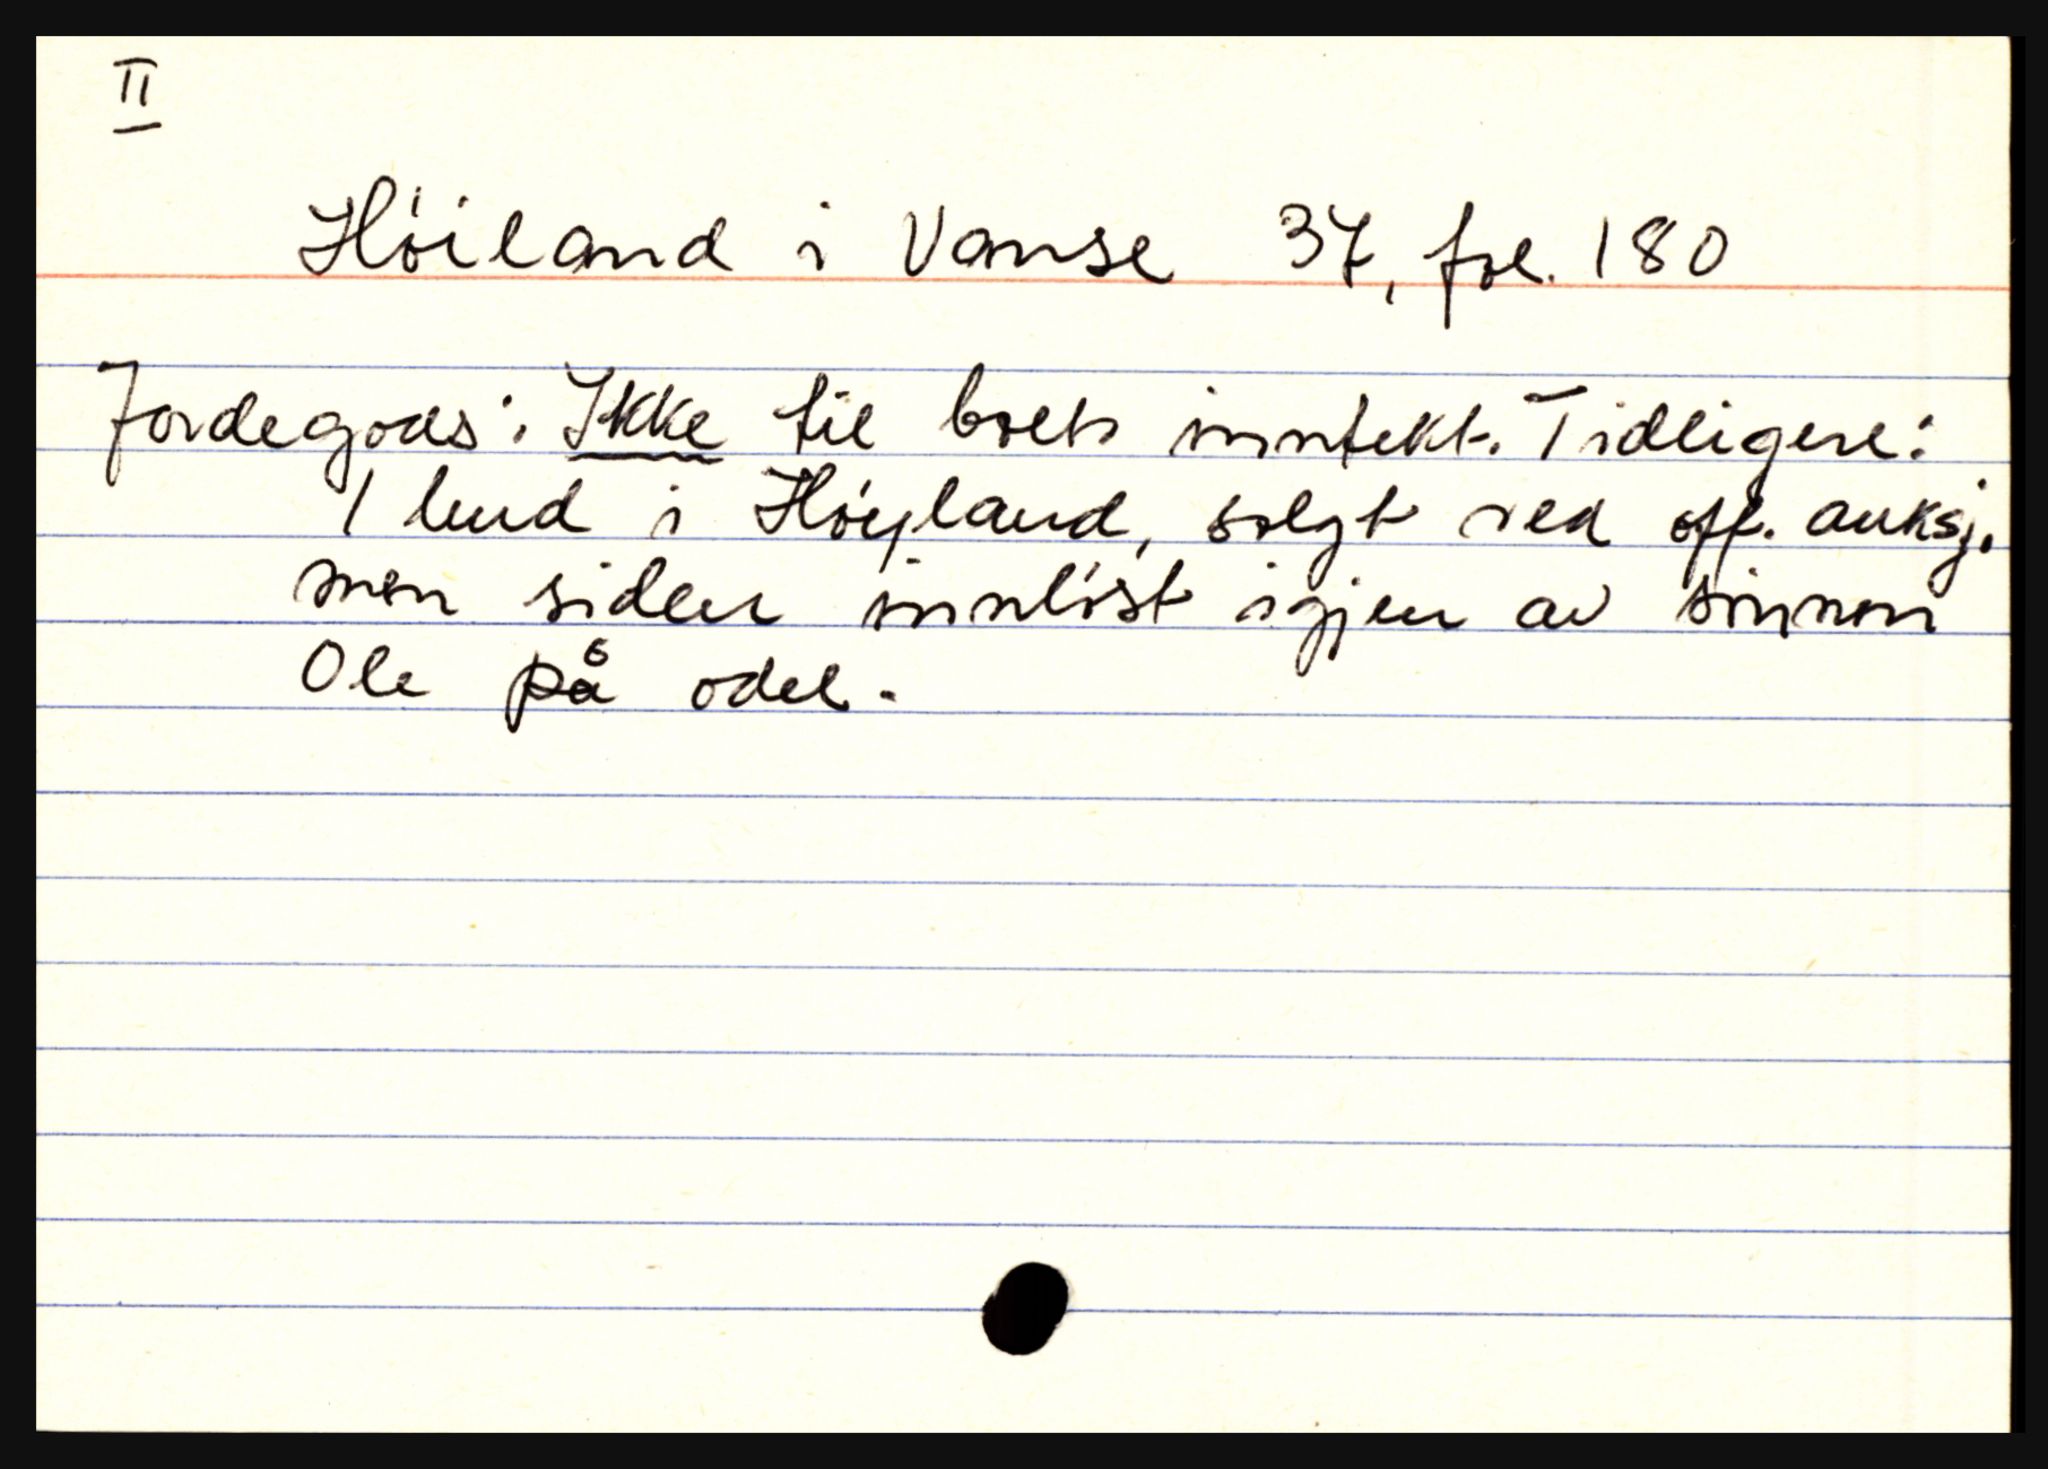 II
Höiland i Vanse 37, fol. 180
Jordegods: Ikke til boets inntekt. Tidligere:
1 hud i Höyland, solgt ved off. auksj.
men siden innlöst igjen av sönnen
Ole på odel.